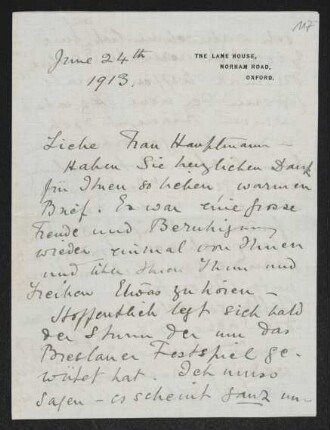 117
THE LANE HOUSE,
NORHAM ROAD,
OXFORD.
June 24th
1913.
Liebe Frau Hauptmann –
Haben Sie herzlichen Dank
für Ihren so lieben, warmen
Brief. Es war eine grosse
Freude und Beruhigung
wieder einmal von Ihnen
und über Ihren Thun und
Treiben Etwas zu hören –
Hoffentlich legt sich bald
der Sturm der um das
Breslauer Festspiel ge-
wütet hat. Ich muss
sagen – es scheint ganz un-